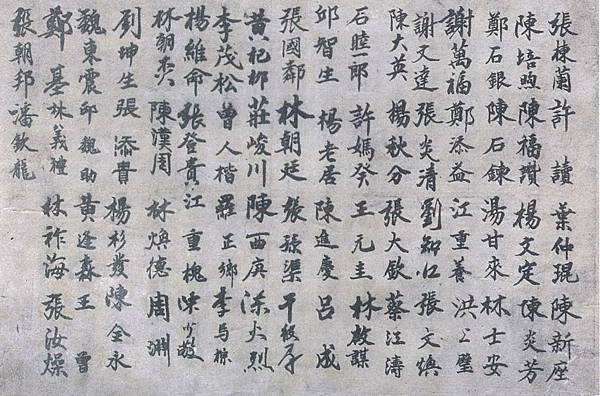 張棟蘭許　讀葉仲琨陳新座
陳培煦陳福讚楊文定陳炎芳
鄭石銀陳石鍊湯甘來林士安
謝萬福鄭添益江重養洪　璧
謝文達張炎清劉知　張文煥
陳大英楊秋分張大欽蔡江濤
石睦郎許媽癸王元圭林啟謀
邱智生楊老居陳進慶呂　成
張國鄰林朝廷張　渠
黃杞柳莊峻川陳西庚　火烈
李茂松曾人楷羅正鄉李与　
楊維命張登貴江重槐陳少
林朝　陳漢周林煥德周　淵
劉坤生張添貴楊杉發陳全永
魏東震邱魏助黃逢森王　曾
鄭　基林義禮林祚海張汝燥
張朝邦潘欽龍